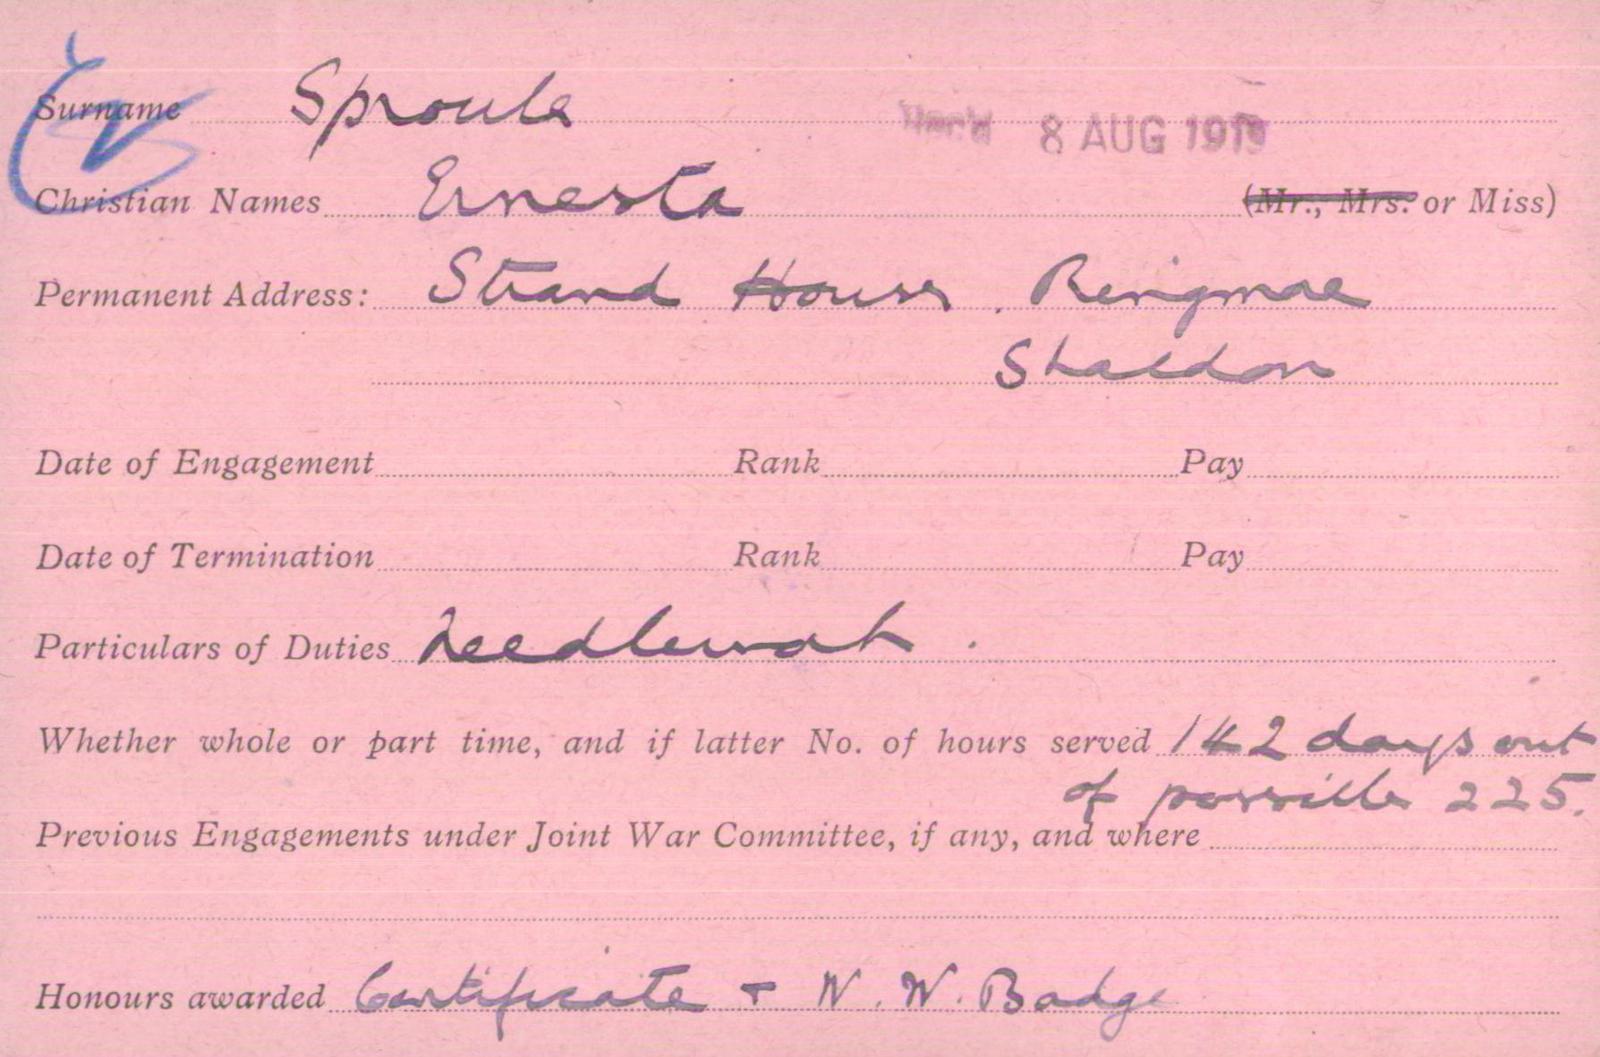 Surname Sproule Rec'd 8 AUG 1919
Christian Names Ernesta (Mr., Mrs. or Miss)
Permanent Address: Strand House, Ringmore
Shaldon
Date of Engagement Rank Pay
Date of Termination Rank Pay
Particulars of Duties Needlework.
Whether whole or part time, and if latter No. of hours served 142 days out
of possible 225.
Previous Engagements under Joint War Committee, if any, and where
Honours awarded Certificate + W. W. Badge